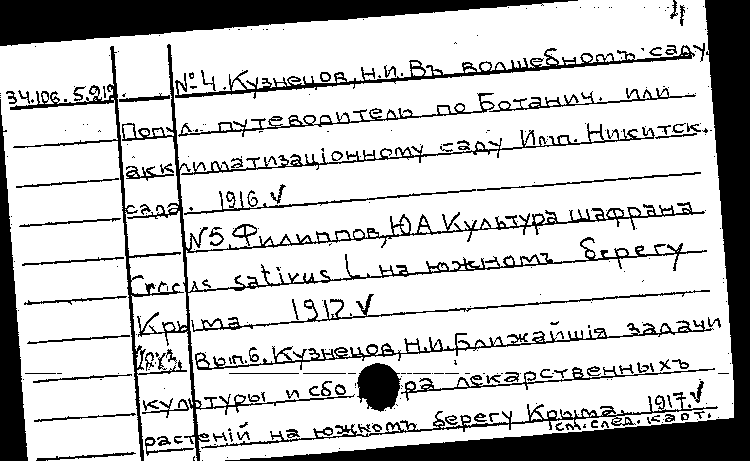 4
34.106.5.212. №4. Кузнецов, Н.И. Въ волшебномъ саду.
Попул. путеводитель по Ботанич. или
акклиматизаціонному саду Имп. Никитск.
сада. 1916. V
N5. Филиппов, ЮА Культура шафрана
Crocus sativus L. на южномъ берегу
Крыма. 1917. V
Вып.6. Кузнецов, Н.И. Ближайшія задачи
культуры и сбора лекарственныхъ
растеній на южномъ берегу Крыма. 1917. V
см. след. карт.